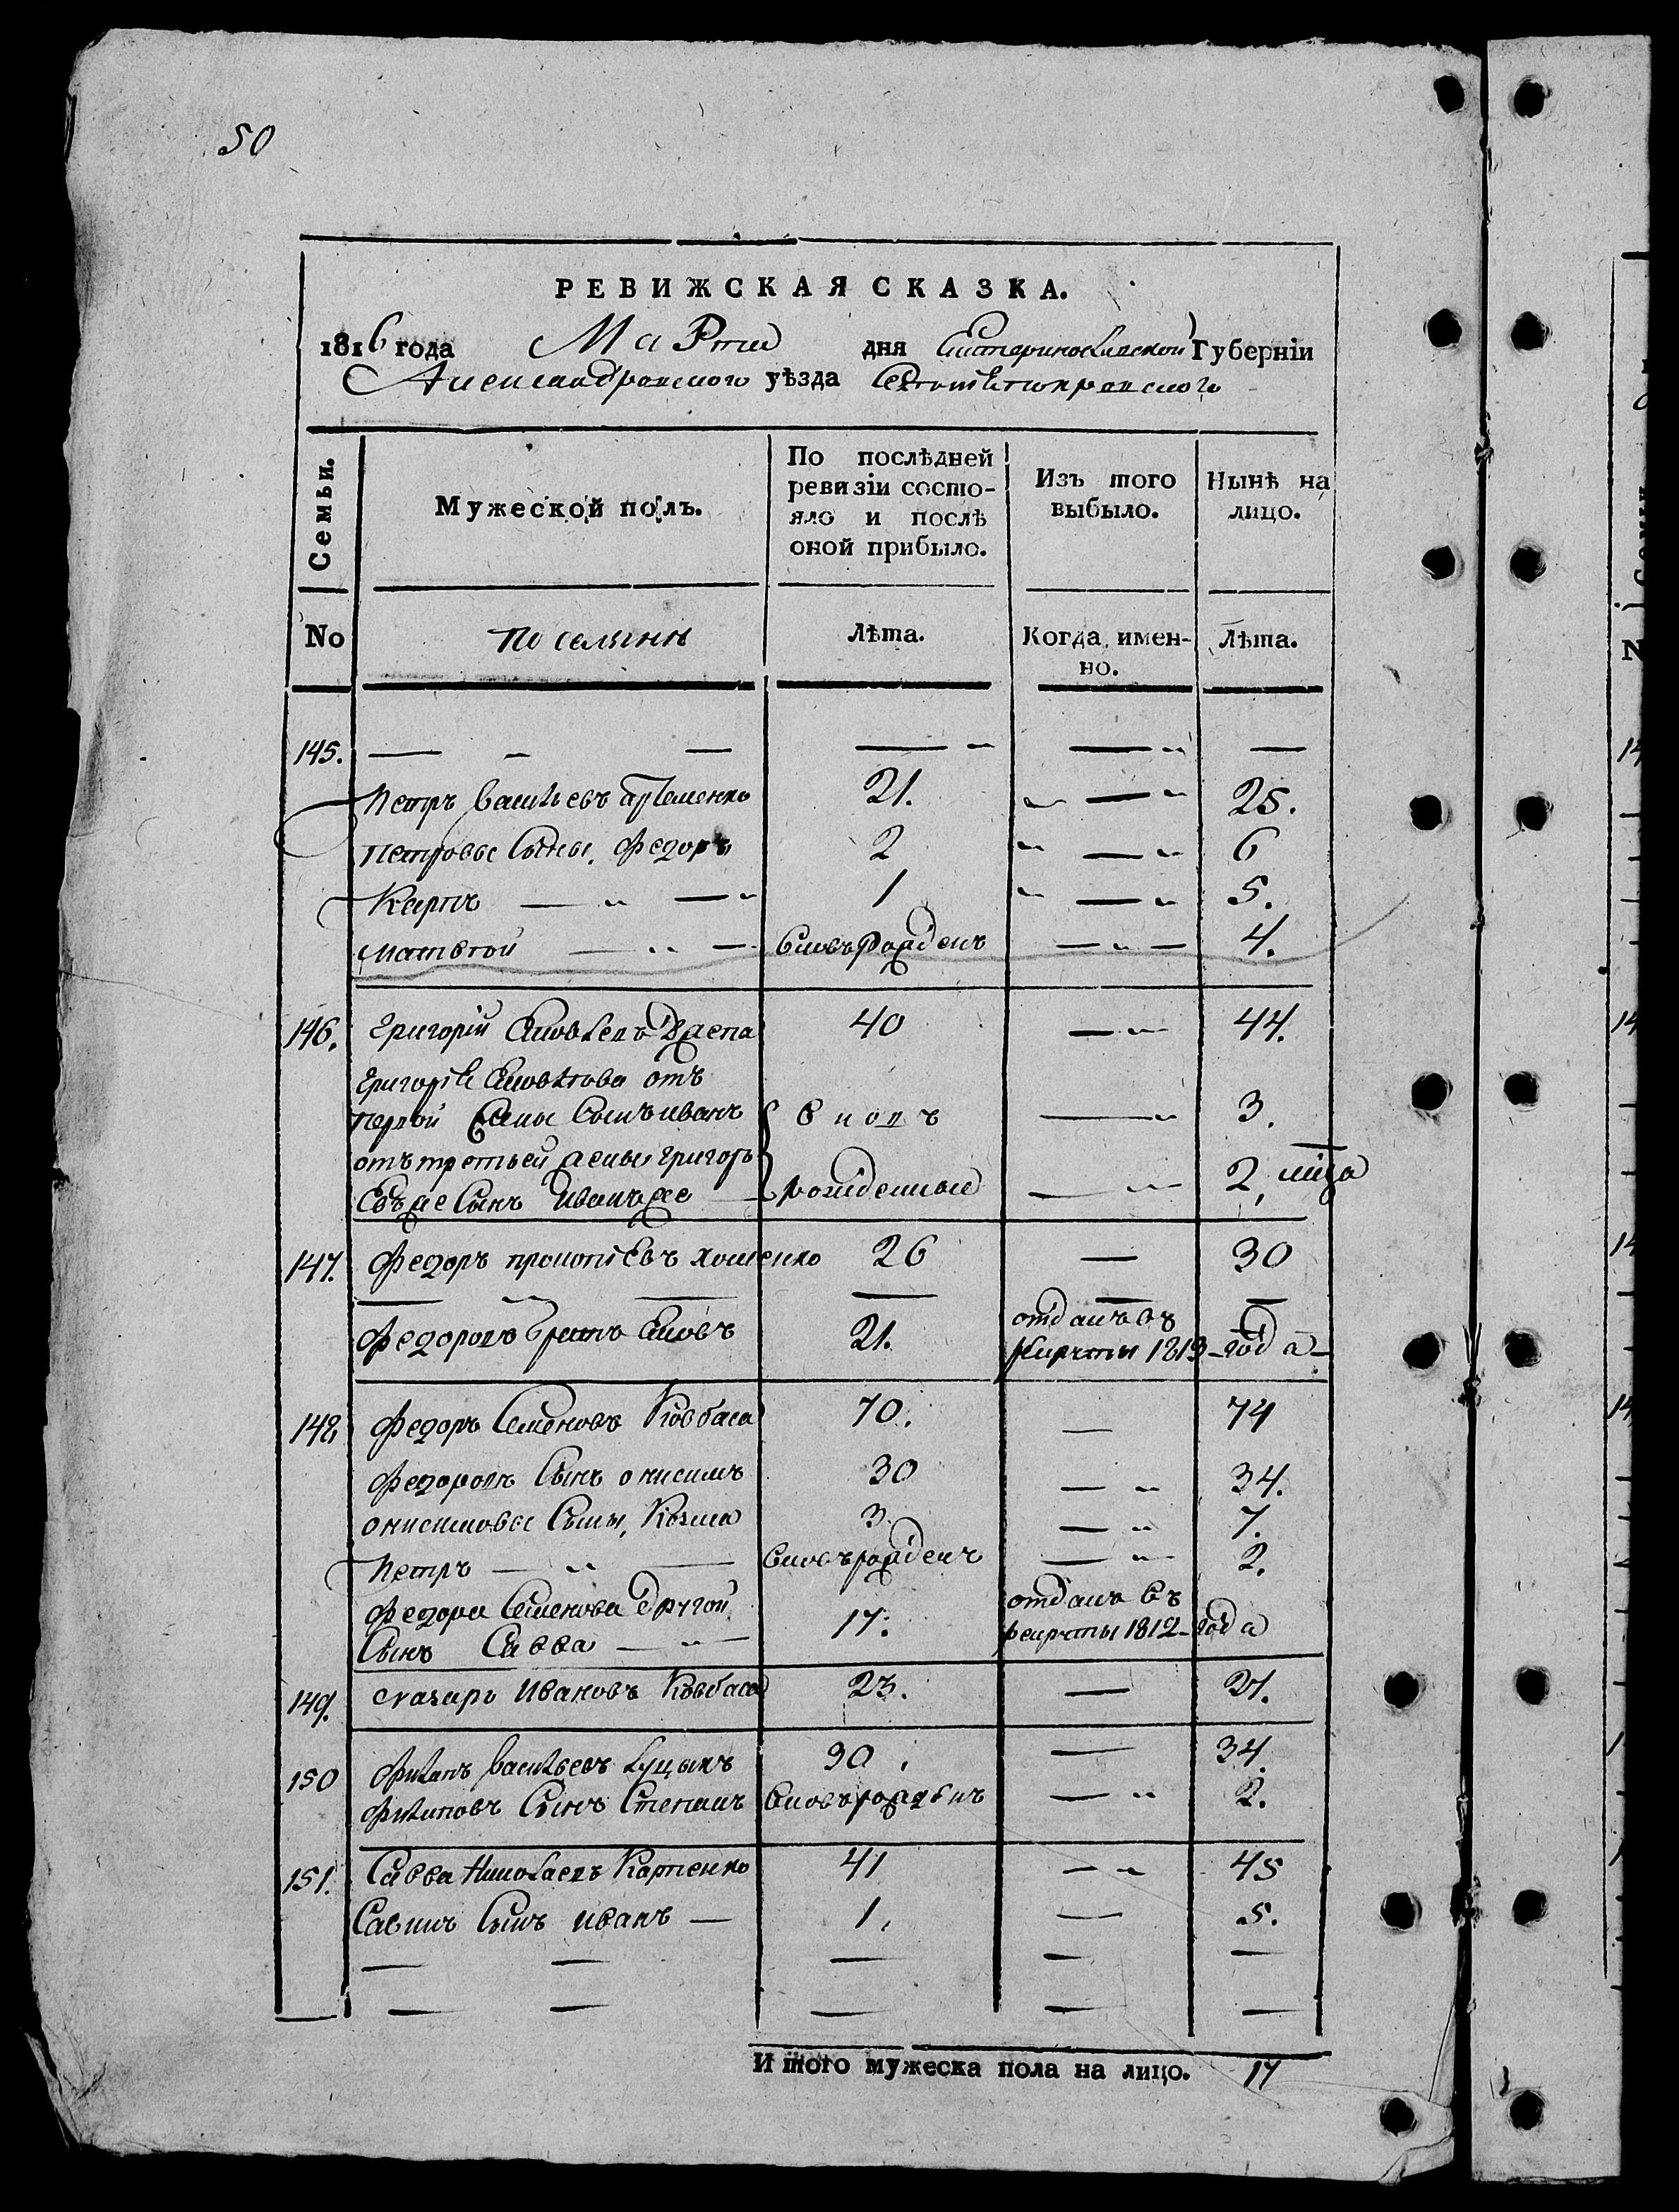 50
РЕВИЖСКАЯ СКАЗКА.
1816 года Марта дня Екатеринославской Губерніи
Александровского уѣзда
Семьи.
Мужеской полъ.
По послѣдней ревизіи состо-яло и послѣ оной прибыло.
Изъ того выбыло.
Нынѣ на лицо.
No
Лѣта.
Когда имен-но.
Лѣта.
145. — — — — — —
Петръ Васильевъ Артеменко 21. — 25.
Петровы Сыны, Федоръ 2 — 6
Карпъ — — 1 — 5.
Матвѣй — — вновь рожденъ — 4.
146. Григорій Яковлевъ 40 — 44.
Григорія Яковлева отъ
первой жены Сынъ иванъ вновь — 3.
отъ третьей жены Григорь
Евъ же Сынъ Иванъ же — рожденные — 2,
147. Федоръ прокопіевъ хоменко 26 — 30
— — — — — —
Федоровъ братъ Яковъ 21. отданъ въ
рекруты 1813 года —
148. Федоръ Семеновъ Ковбаса 70. — 74
Федоровъ Сынъ онисимъ 30 — 34.
онисимовы Сыны, Козма 3. — 7.
Петръ — — вновь рожденъ — 2.
Федора Семенова другой
Сынъ Савва — 17. отданъ въ
рекруты 1812 года
149. Назаръ Ивановъ Ковбаса 23. — 27.
150 Филипъ Васильевъ 30. — 34.
Филиповъ Сынъ Степанъ вновь рожденъ — 2.
151. Савва Николаевъ Карпенко 41 — 45
Савинъ Сынъ иванъ — 1. — 5.
— — — — —
— — — — —
И того мужеска пола на лицо. 17